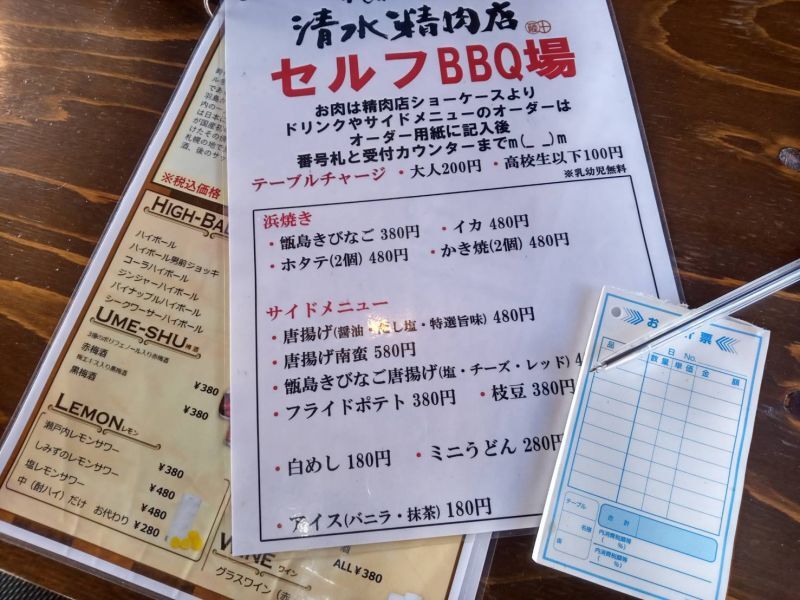 清水精肉店
セルフBBQ場
お肉は精肉店ショーケースより
ドリンクやサイドメニューのオーダーは
オーダー用紙に記入後
番号札と受付カウンターまでm(_ _)m
テーブルチャージ ・大人200円 ・高校生以下100円
※乳幼児無料
浜焼き
・甑島きびなご 380円 ・イカ 480円
・ホタテ(2個) 480円 ・かき焼(2個) 480円
サイドメニュー
・唐揚げ(醤油・だし塩・特選旨味) 480円
・唐揚げ南蛮 580円
・甑島きびなご唐揚げ(塩・チーズ・レッド)
・フライドポテト 380円 ・枝豆 380円
・白めし 180円 ・ミニうどん 280円
・アイス(バニラ・抹茶) 180円
※税込価格
HIGH-BALL
ハイボール
ハイボール男前ジョッキ
コーラハイボール
ジンジャーハイボール
パイナップルハイボール
シークワーサーハイボール
UME-SHU 梅酒
3種のポリフェノール入り赤梅酒
赤梅酒
梅エキス入り黒梅酒
黒梅酒
¥380
¥380
LEMON レモン
瀬戸内レモンサワー ¥380
しみずのレモンサワー ¥480
塩レモンサワー ¥480
中(酎ハイ)だけ お代わり ¥280
WINE ワイン
グラスワイン(赤
ALL¥380
お 票
日 No.
品 数量 単価 金額
合計
テーブル
名様
係
内消費税額等
( %)
内消費税額等
( %)